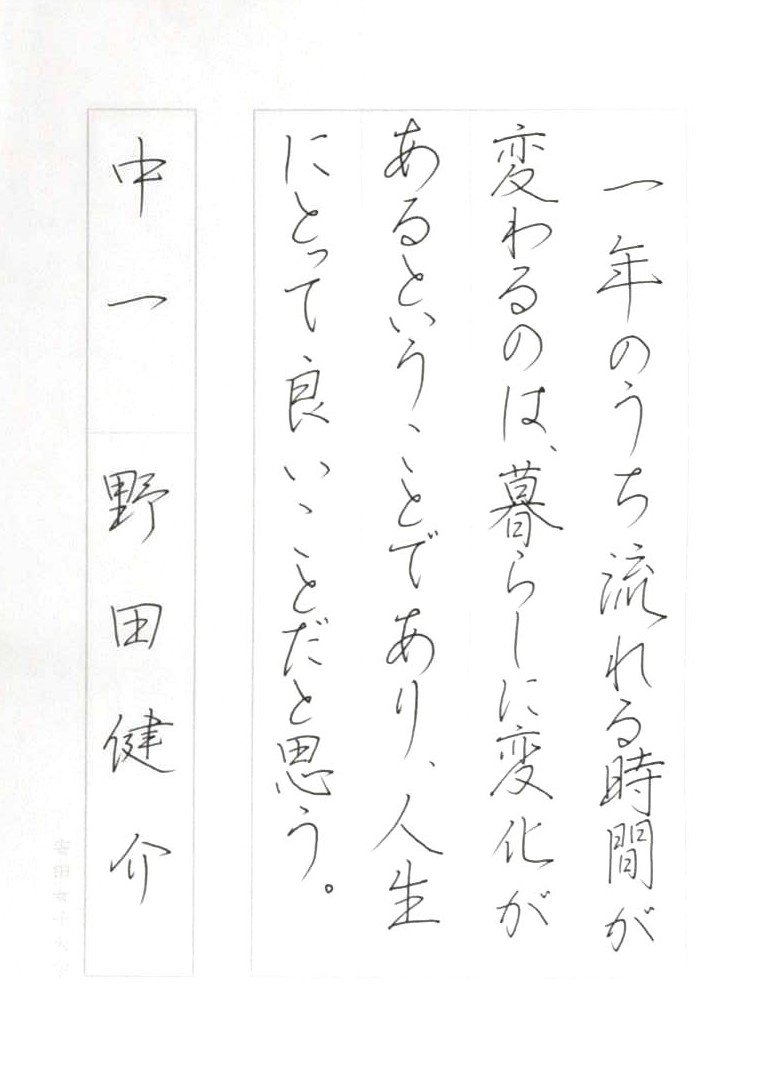 一年のうち流れる時間が
変わるのは、暮らしに変化が
あるということであり、人生
にとって良いことだと思う。
中一 野田健介